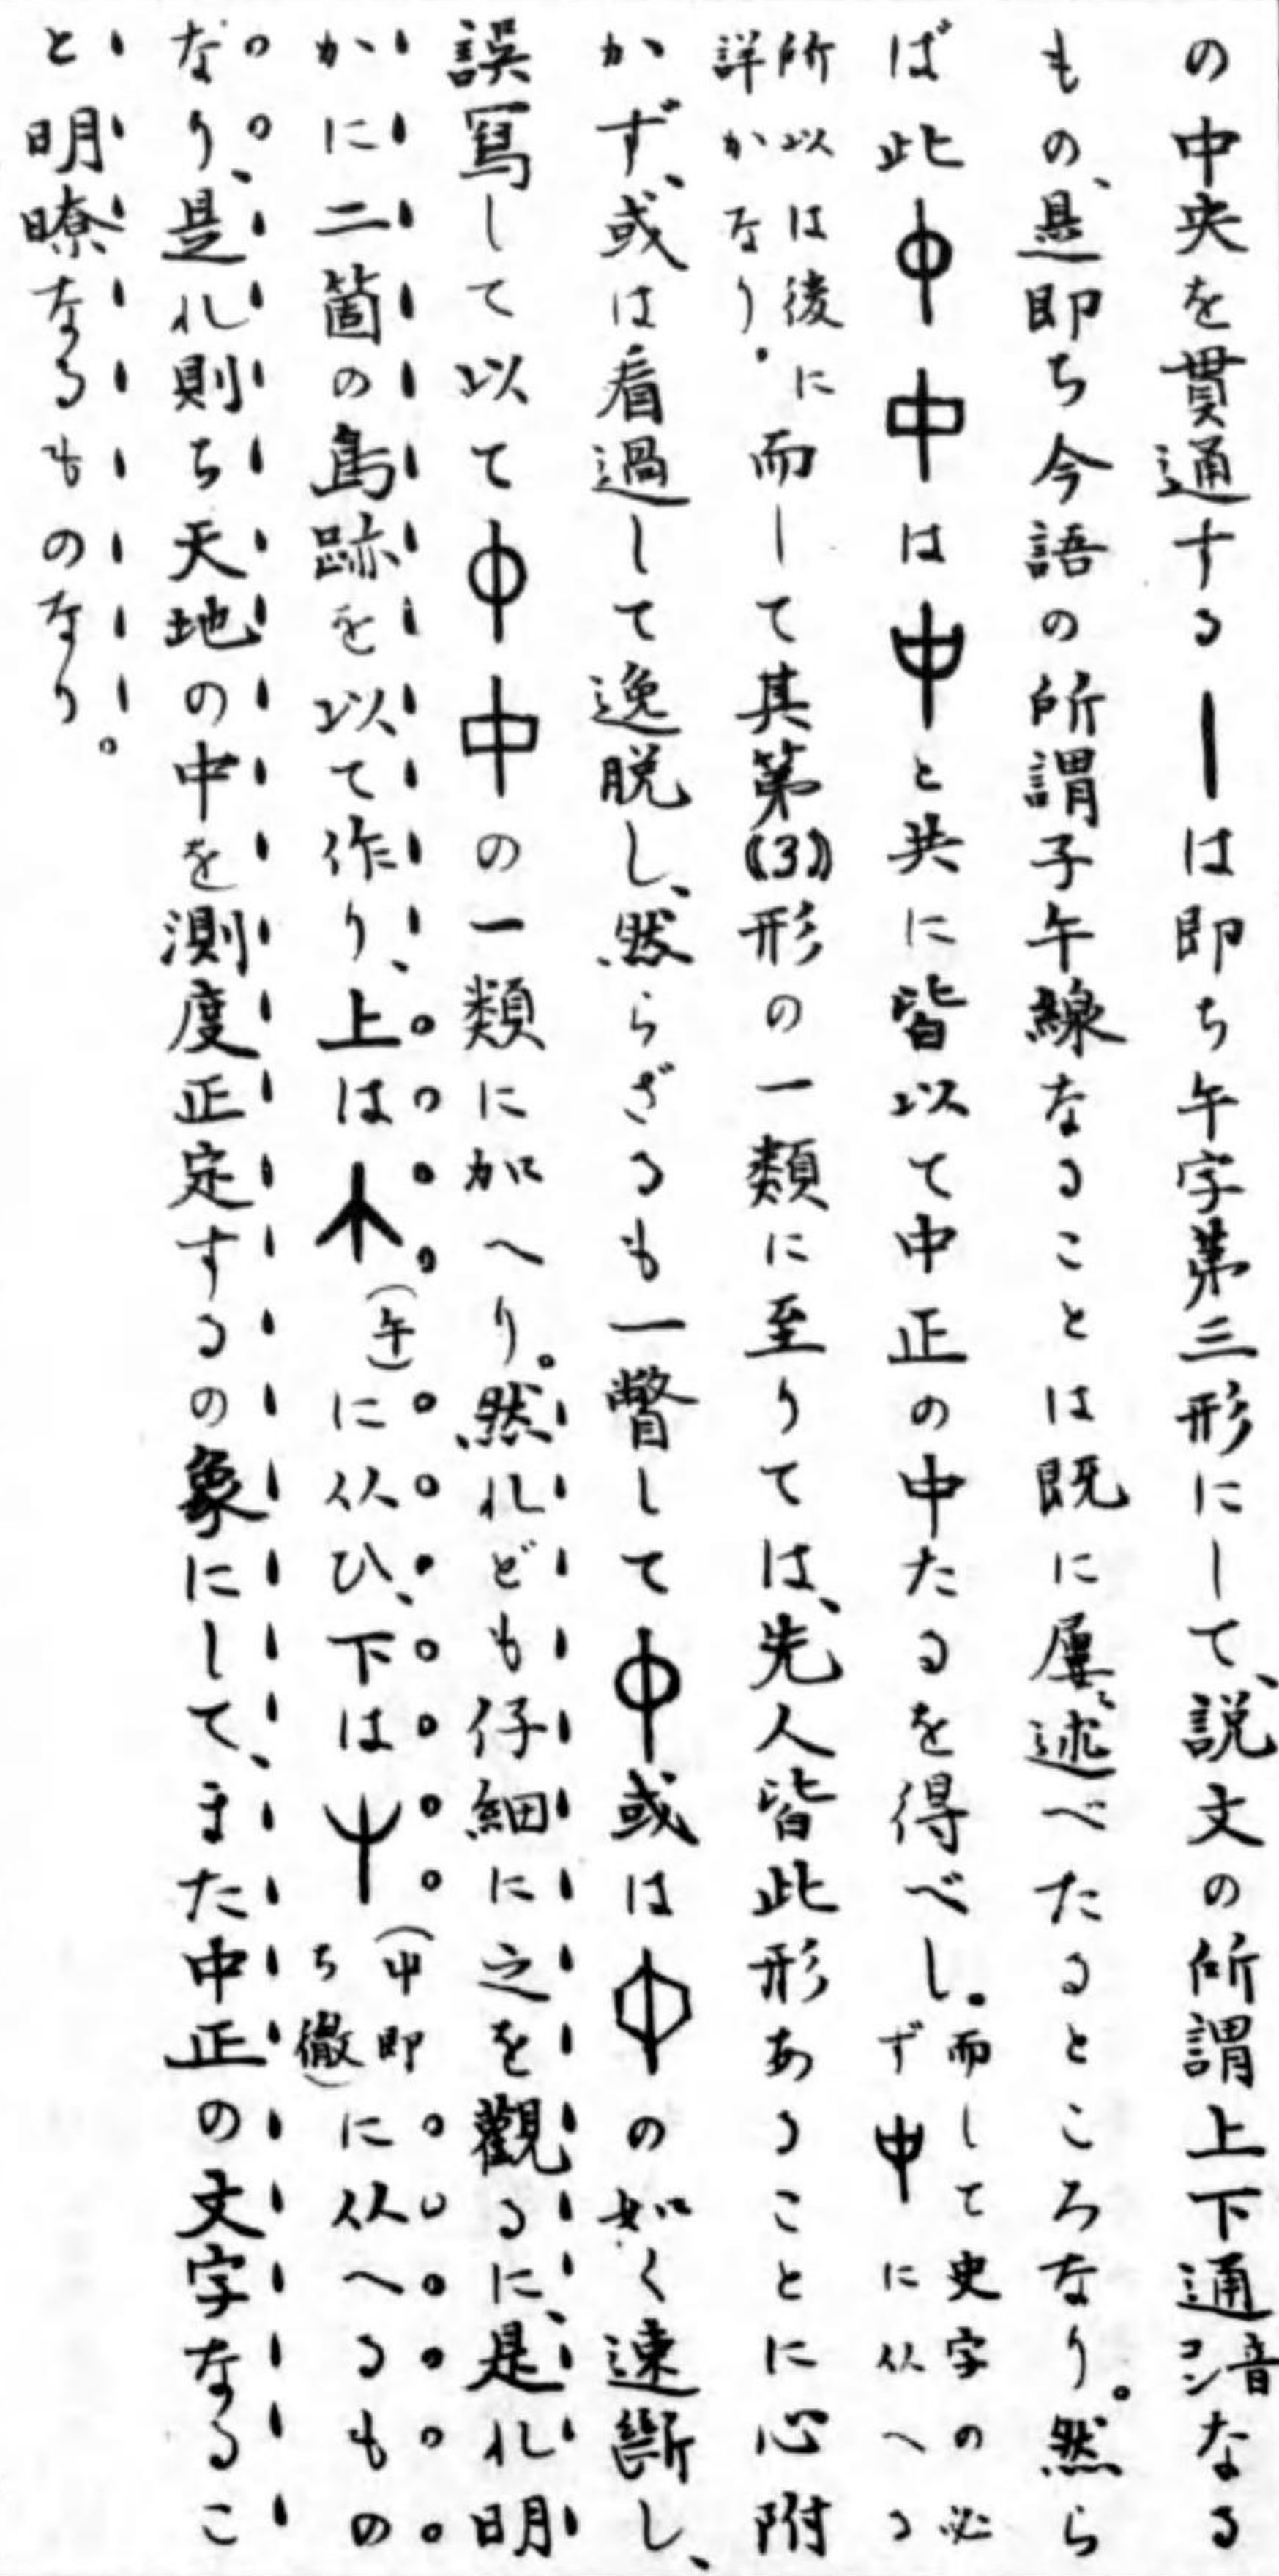 の中央を貫通する丨は即ち午字第三形にして、説文の所謂上下通音コンなる
もの、是即ち今語の所謂子午線なることは既に屢〻述べたるところなり。然ら
ば此中中は中と共に皆以て中正の中たるを得べし。而して史字の必ず中に从へる
所以は後に詳かなり。而して其第(3)形の一類に至りては、先人皆此形あることに心附
かず、或は看過して逸脱し、然らざるも一瞥して中或は中の如く速斷し、
誤寫して以て中中の一類に加へり。然れども仔細に之を觀るに、是れ明
かに二箇の鳥跡を以て作り、上は(午)に从ひ、下は(屮即ち徹)に从へるもの
なり、是れ則ち天地の中を測度正定するの象にして、また中正の文字なるこ
と明瞭なるものなり。